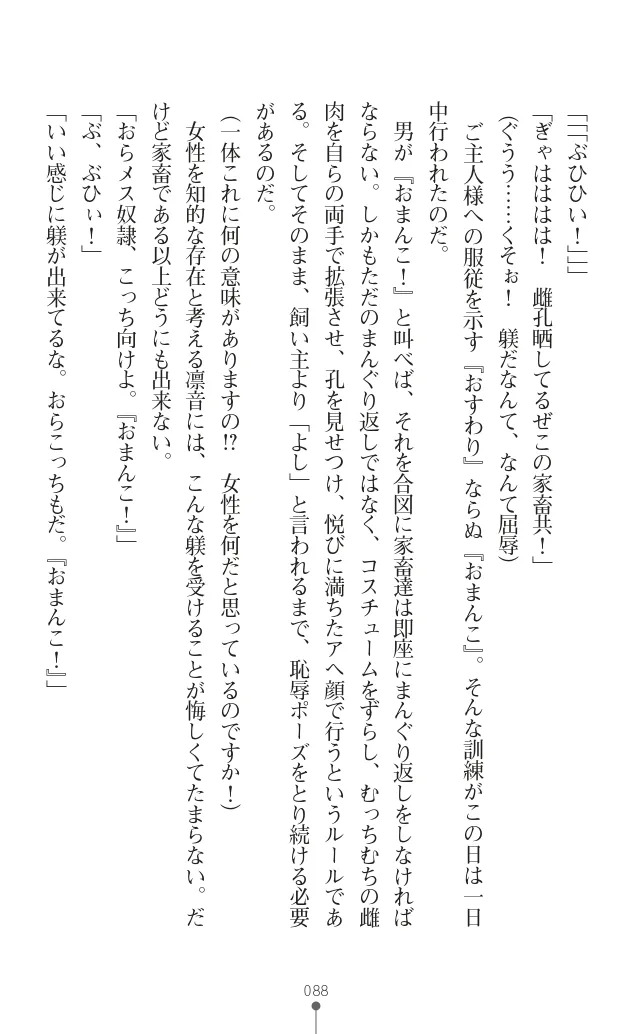 「「「ぶひひい！」」」
「ぎゃはははは！　雌孔晒してるぜこの家畜共！」
（ぐうう……くそぉ！　躾だなんて、なんて屈辱）
　ご主人様への服従を示す『おすわり』ならぬ『おまんこ』。そんな訓練がこの日は一日
中行われたのだ。
　男が『おまんこ！』と叫べば、それを合図に家畜達は即座にまんぐり返しをしなければ
ならない。しかもただのまんぐり返しではなく、コスチュームをずらし、むっちむちの雌
肉を自らの両手で拡張させ、孔を見せつけ、悦びに満ちたアヘ顔で行うというルールであ
る。そしてそのまま、飼い主より「よし」と言われるまで、恥辱ポーズをとり続ける必要
があるのだ。
（一体これに何の意味がありますの!?　女性を何だと思っているのですか！）
　女性を知的な存在と考える凛音には、こんな躾を受けることが悔しくてたまらない。だ
けど家畜である以上どうにも出来ない。
「おらメス奴隷、こっち向けよ。『おまんこ！』」
「ぶ、ぶひぃ！」
「いい感じに躾が出来てるな。おらこっちもだ。『おまんこ！』」
088